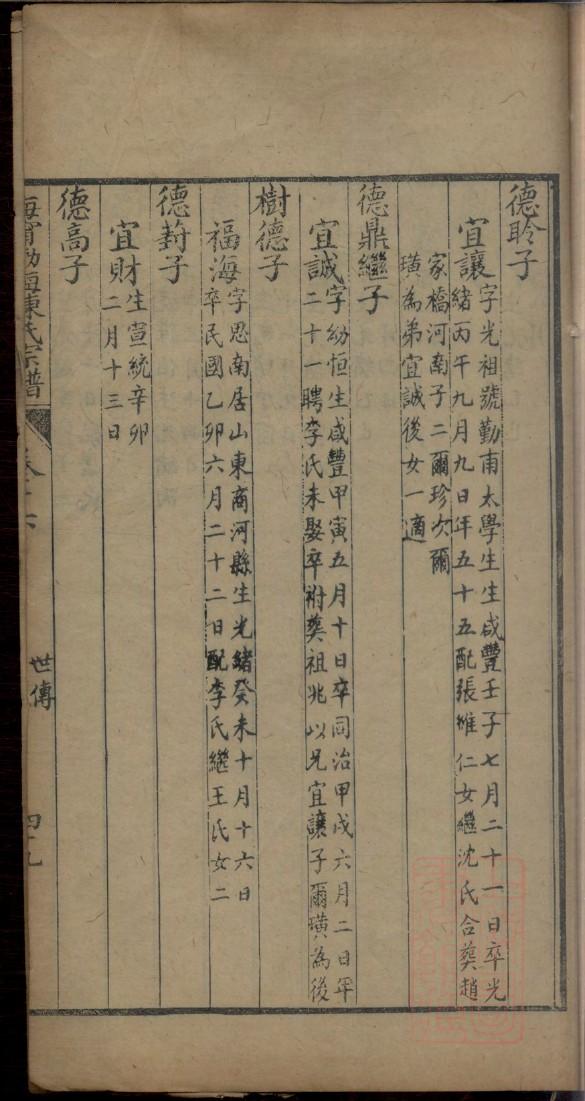 德聆子
宜讓字光祖號勤甫太學生生咸豐壬子七月二十一日卒光
緒丙午九月九日年五十五配張維仁女繼沈氏合葬趙
家橋河南子二爾珍次爾
璜為弟宜誠後女一適
德鼎繼子
宜誠字幼恒生咸豐甲寅五月十日卒同治甲戌六月二日年
二十一聘李氏未娶卒祔葬祖兆以兄宜讓子爾璜為後
樹德子
福海字思南居山東商河縣生光緒癸未十月十六日
卒民國乙卯六月二十二日配李氏繼王氏女二
德葑子
宜財生宣統辛卯
二月十三日
德高子
海甯渤海陳氏宗譜
卷十六
世傳
四九